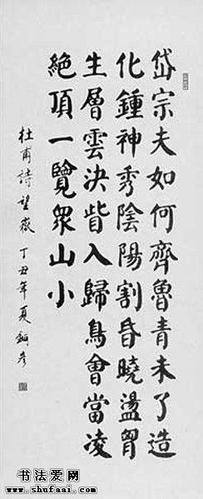 岱宗夫如何齊魯青未了造
化鍾神秀陰陽割昏曉盪胷
生層雲決眥入歸鳥會當凌
絕頂一覽衆山小
杜甫詩望嶽 丁丑年夏
书法爱网
www.shufaai.com